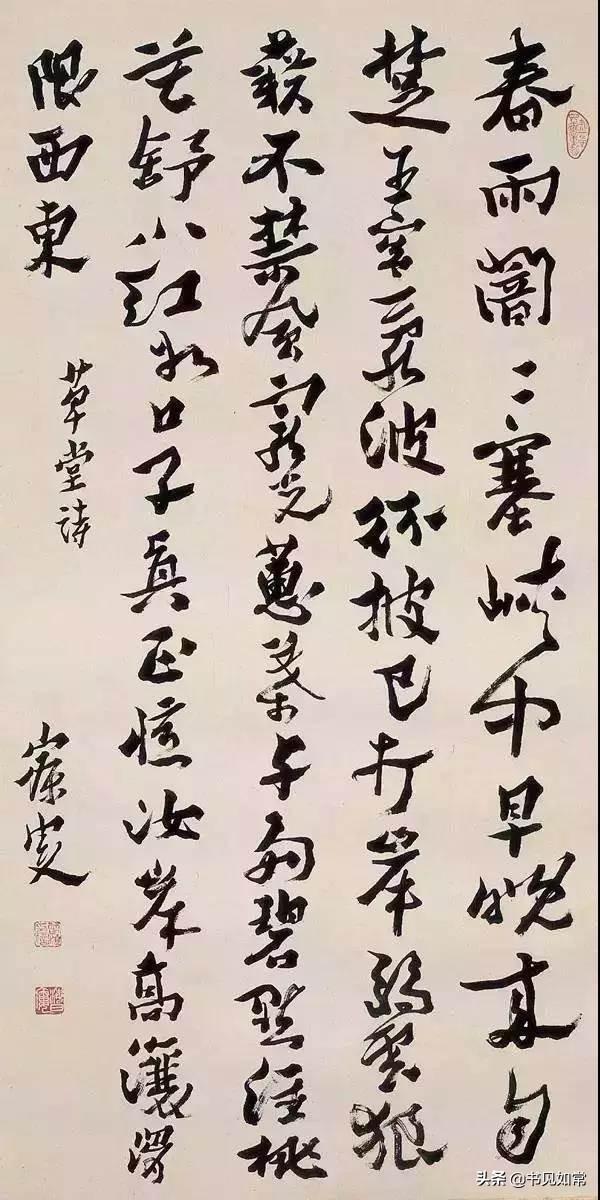 春雨闇〻塞峽中早晚來自
楚王宮亂波紛披已打岸弱雲狼
藉不禁風寵光蕙葉與多碧點注桃
花舒小紅谷口子眞正憶汝岸高瀼滑
限西東
草堂詩
寐叟
头条 @书见如常